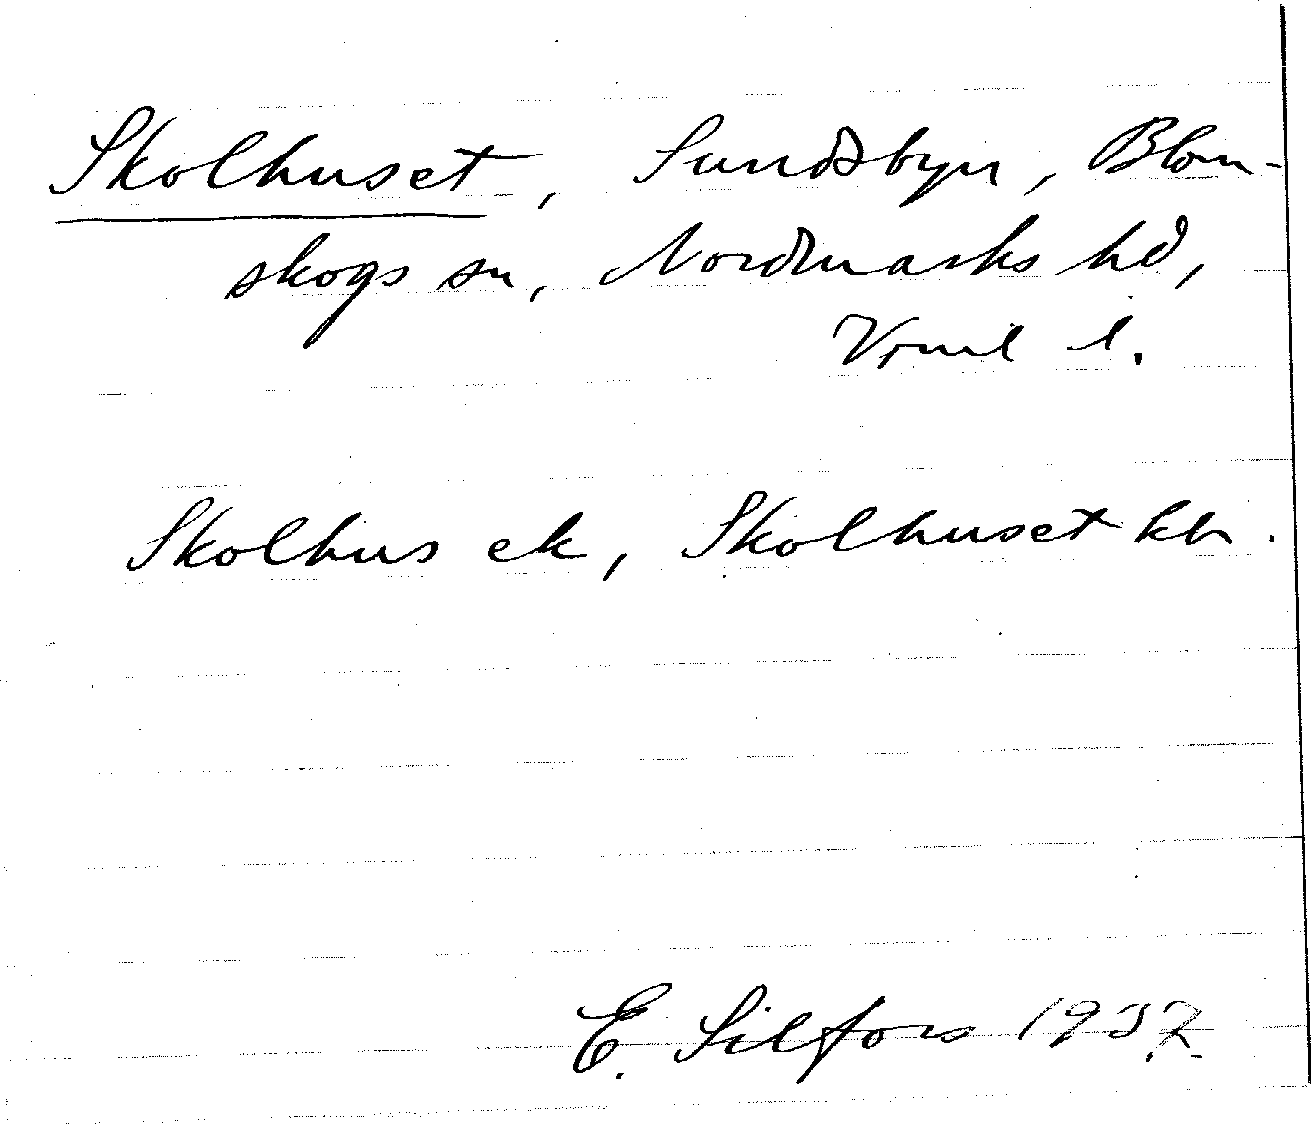 Skolhuset, Sundsbyn, Blom-
skogs sn, Nordmarks hd,
Vrml l.
Skolhus ek, Skolhuset kbr.
E. Silfors 1937.